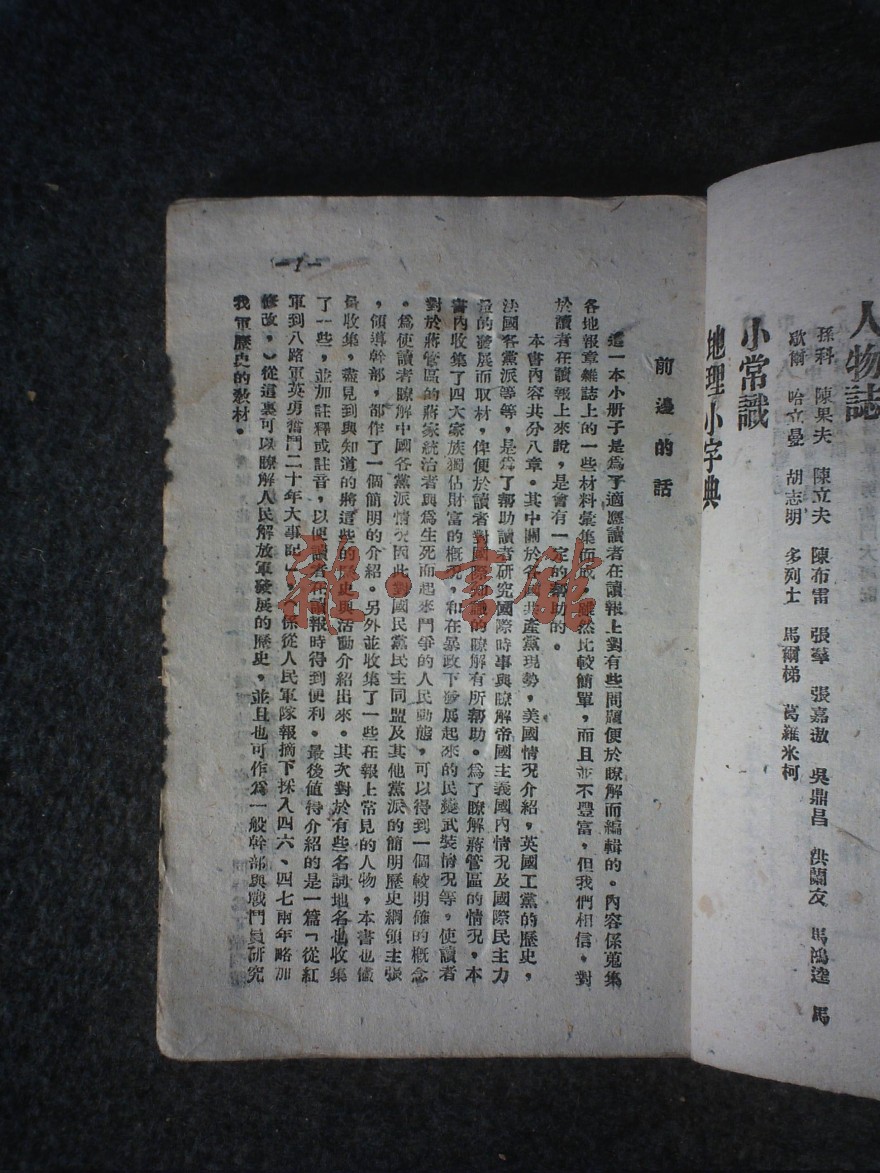 人物誌
孫科 陳果夫 陳立夫 陳布雷 張羣 張嘉璈 吳鼎昌 洪蘭友 馬鴻逵 馬
歇爾 哈立曼 胡志明 多列士 馬爾梯 葛羅米柯
小常識
地理小字典
前邊的話
這一本小册子是爲了適應讀者在讀報上對有些問題便於瞭解而編輯的。內容係蒐集
各地報章雜誌上的一些材料彙集而成，雖然比較簡單，而且並不豐富，但我們相信，對
於讀者在讀報上來說，是會有一定的幫助的。
本書內容共分八章。其中關於各國共產黨現勢，美國情況介紹，英國工黨的歷史，
法國各黨派等等，是爲了帮助讀者研究國際時事與瞭解帝國主義國內情況及國際民主力
量的發展而取材，俾便於讀者對國際知識的瞭解有所幫助。爲了瞭解蔣管區的情況，本
書內收集了四大家族獨佔財富的概況，和在暴政下發展起來的民變武裝情況等，使讀者
對於蔣管區的蔣家統治者與爲生死而起來鬥爭的人民動態，可以得到一個較明確的概念
。爲使讀者瞭解中國各黨派情況因此對國民黨民主同盟及其他黨派的簡明歷史綱領主張
，領導幹部，都作了一個簡明的介紹。另外並收集了一些在報上常見的人物，本書也儘
量收集，盡見到與知道的將這些的歷史與活動介紹出來。其次對於有些名詞地名也收集
了一些，並加註釋或註音，以便讀者在讀報時得到便利。最後値得介紹的是一篇「從紅
軍到八路軍英勇奮鬥二十年大事記」，（係從人民軍隊報摘下採入四六、四七兩年略加
修改，）從這裏可以瞭解人民解放軍發展的歷史，並且也可作爲一般幹部與戰鬥員研究
我軍歷史的教材。
—1—
雜·書館